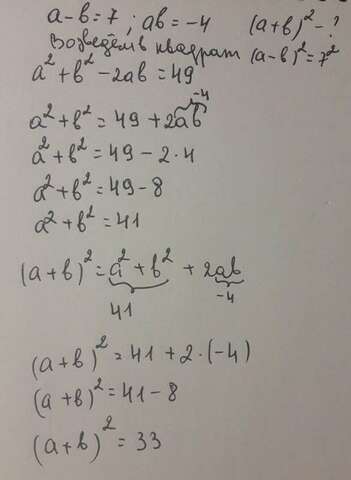 a-b=7; ab=-4 (a+b)²-?
Возведём в квадрат (a-b)²=7²
a²+b²-2ab=49
-4
a²+b²=49+2ab
a²+b²=49-2·4
a²+b²=49-8
a²+b²=41
(a+b)²=a²+b²+2ab
41 -4
(a+b)²=41+2·(-4)
(a+b)²=41-8
(a+b)²=33